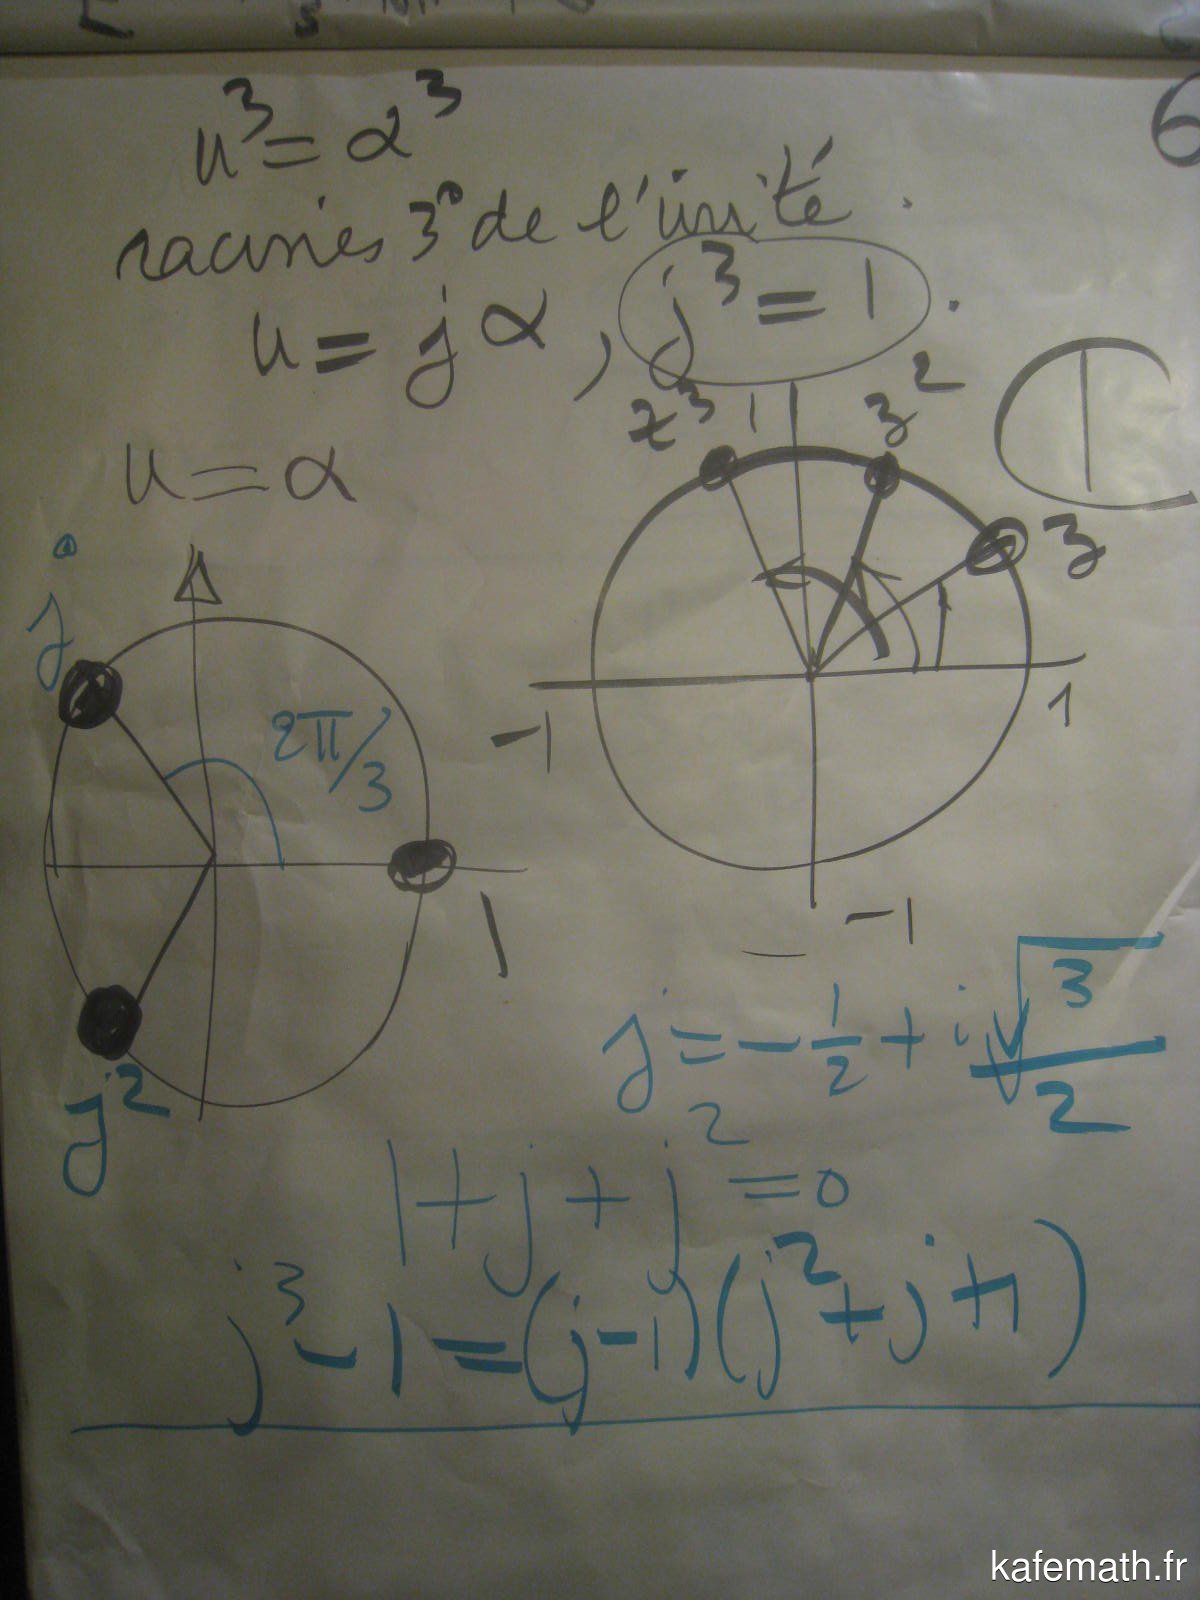 6
u³ = α³
racines 3° de l'unité.
u = jα, j³ = 1.
u = α
z³ 1 z² z
-1 1
-1
j
2π/3
1
j²
j = -1/2 + i √3/2
1 + j + j² = 0
j³ - 1 = (j - 1)(j² + j + 1)
kafemath.fr